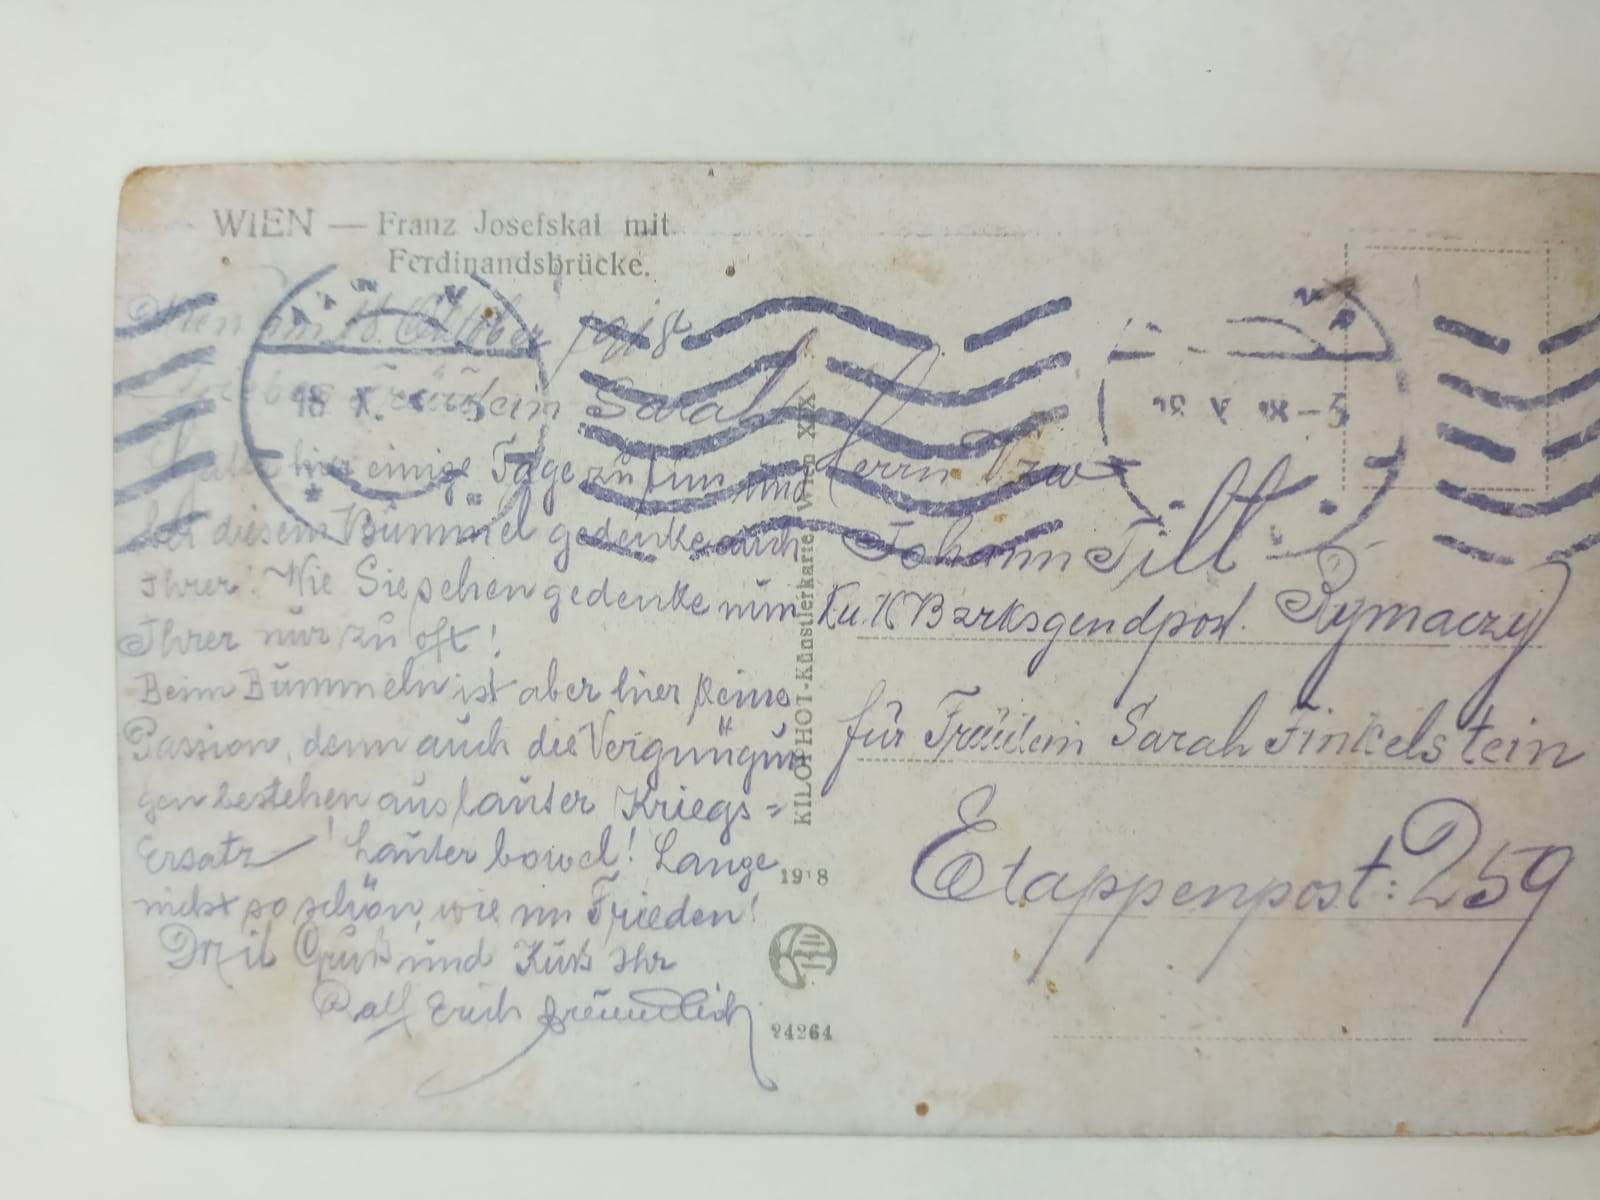 WIEN — Franz Josefskai mit
Ferdinandsbrücke.
Wien am 18. Oktober 1918
Fräulein Sarah!
Habe hier einige Tage zu tun und
bei diesem Bummel gedenke auch
Ihrer. Wie Sie sehen gedenke nun
Ihrer nur zu oft!
Beim Bummeln ist aber hier keine
Passion, denn auch die Vergnügun
gen bestehen aus lauter Kriegs=
Ersatz! Lauter bowel! Lange
nicht so schön, wie im Frieden!
Mit Gruß und Kuß Ihr
Ralf Erich Freundlich
KILOPHOT-Künstlerkarte, Wien XIX
1918
24264
18 X
Herrn Vzw
Johann Till
K u. K Bzrksgendpost. Rymaczy
für Fräulein Sarah Finkelstein
Etappenpost: 259